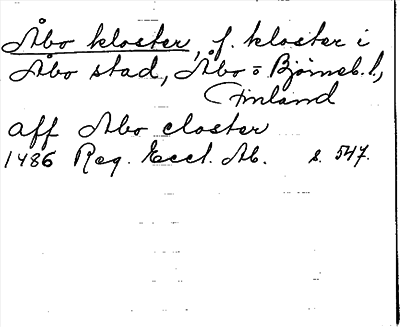 Åbo kloster, f. kloster i
Åbo stad, Åbo o Björneb. l.,
Finland
aff Abo closter
1486 Reg. Eccl. Ab. s. 547.